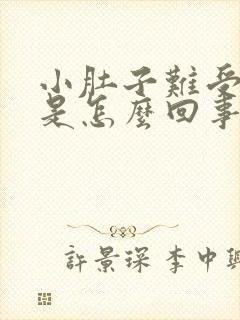 小肚子難受
是怎麼回事
許景琛 李中興